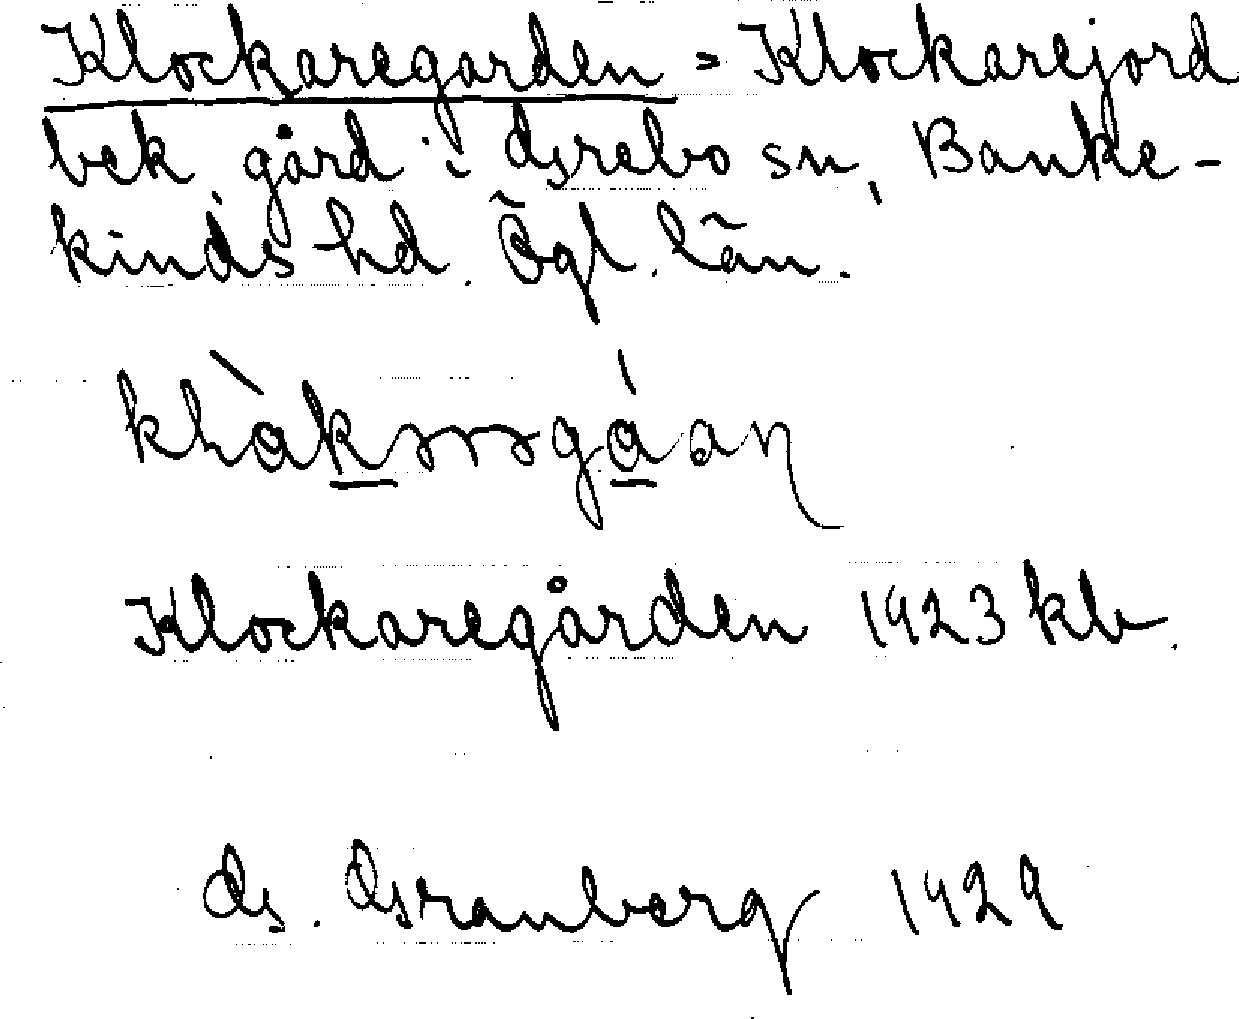 Klockaregården = Klockarejord
bek gård i Grebo sn, Banke-
kinds hd. Ögl. län.
Klockaregården 1923 kb.
G. Granberg 1929